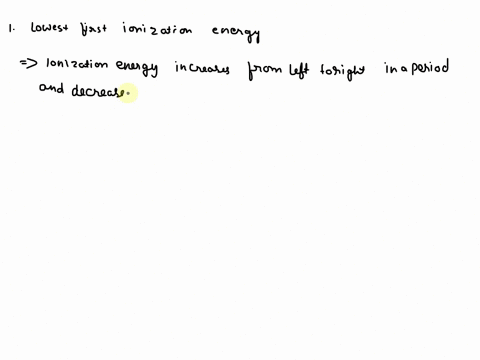 1. Lowest first ionization energy
=> Ionization energy increases from left to right in a period
and decrease